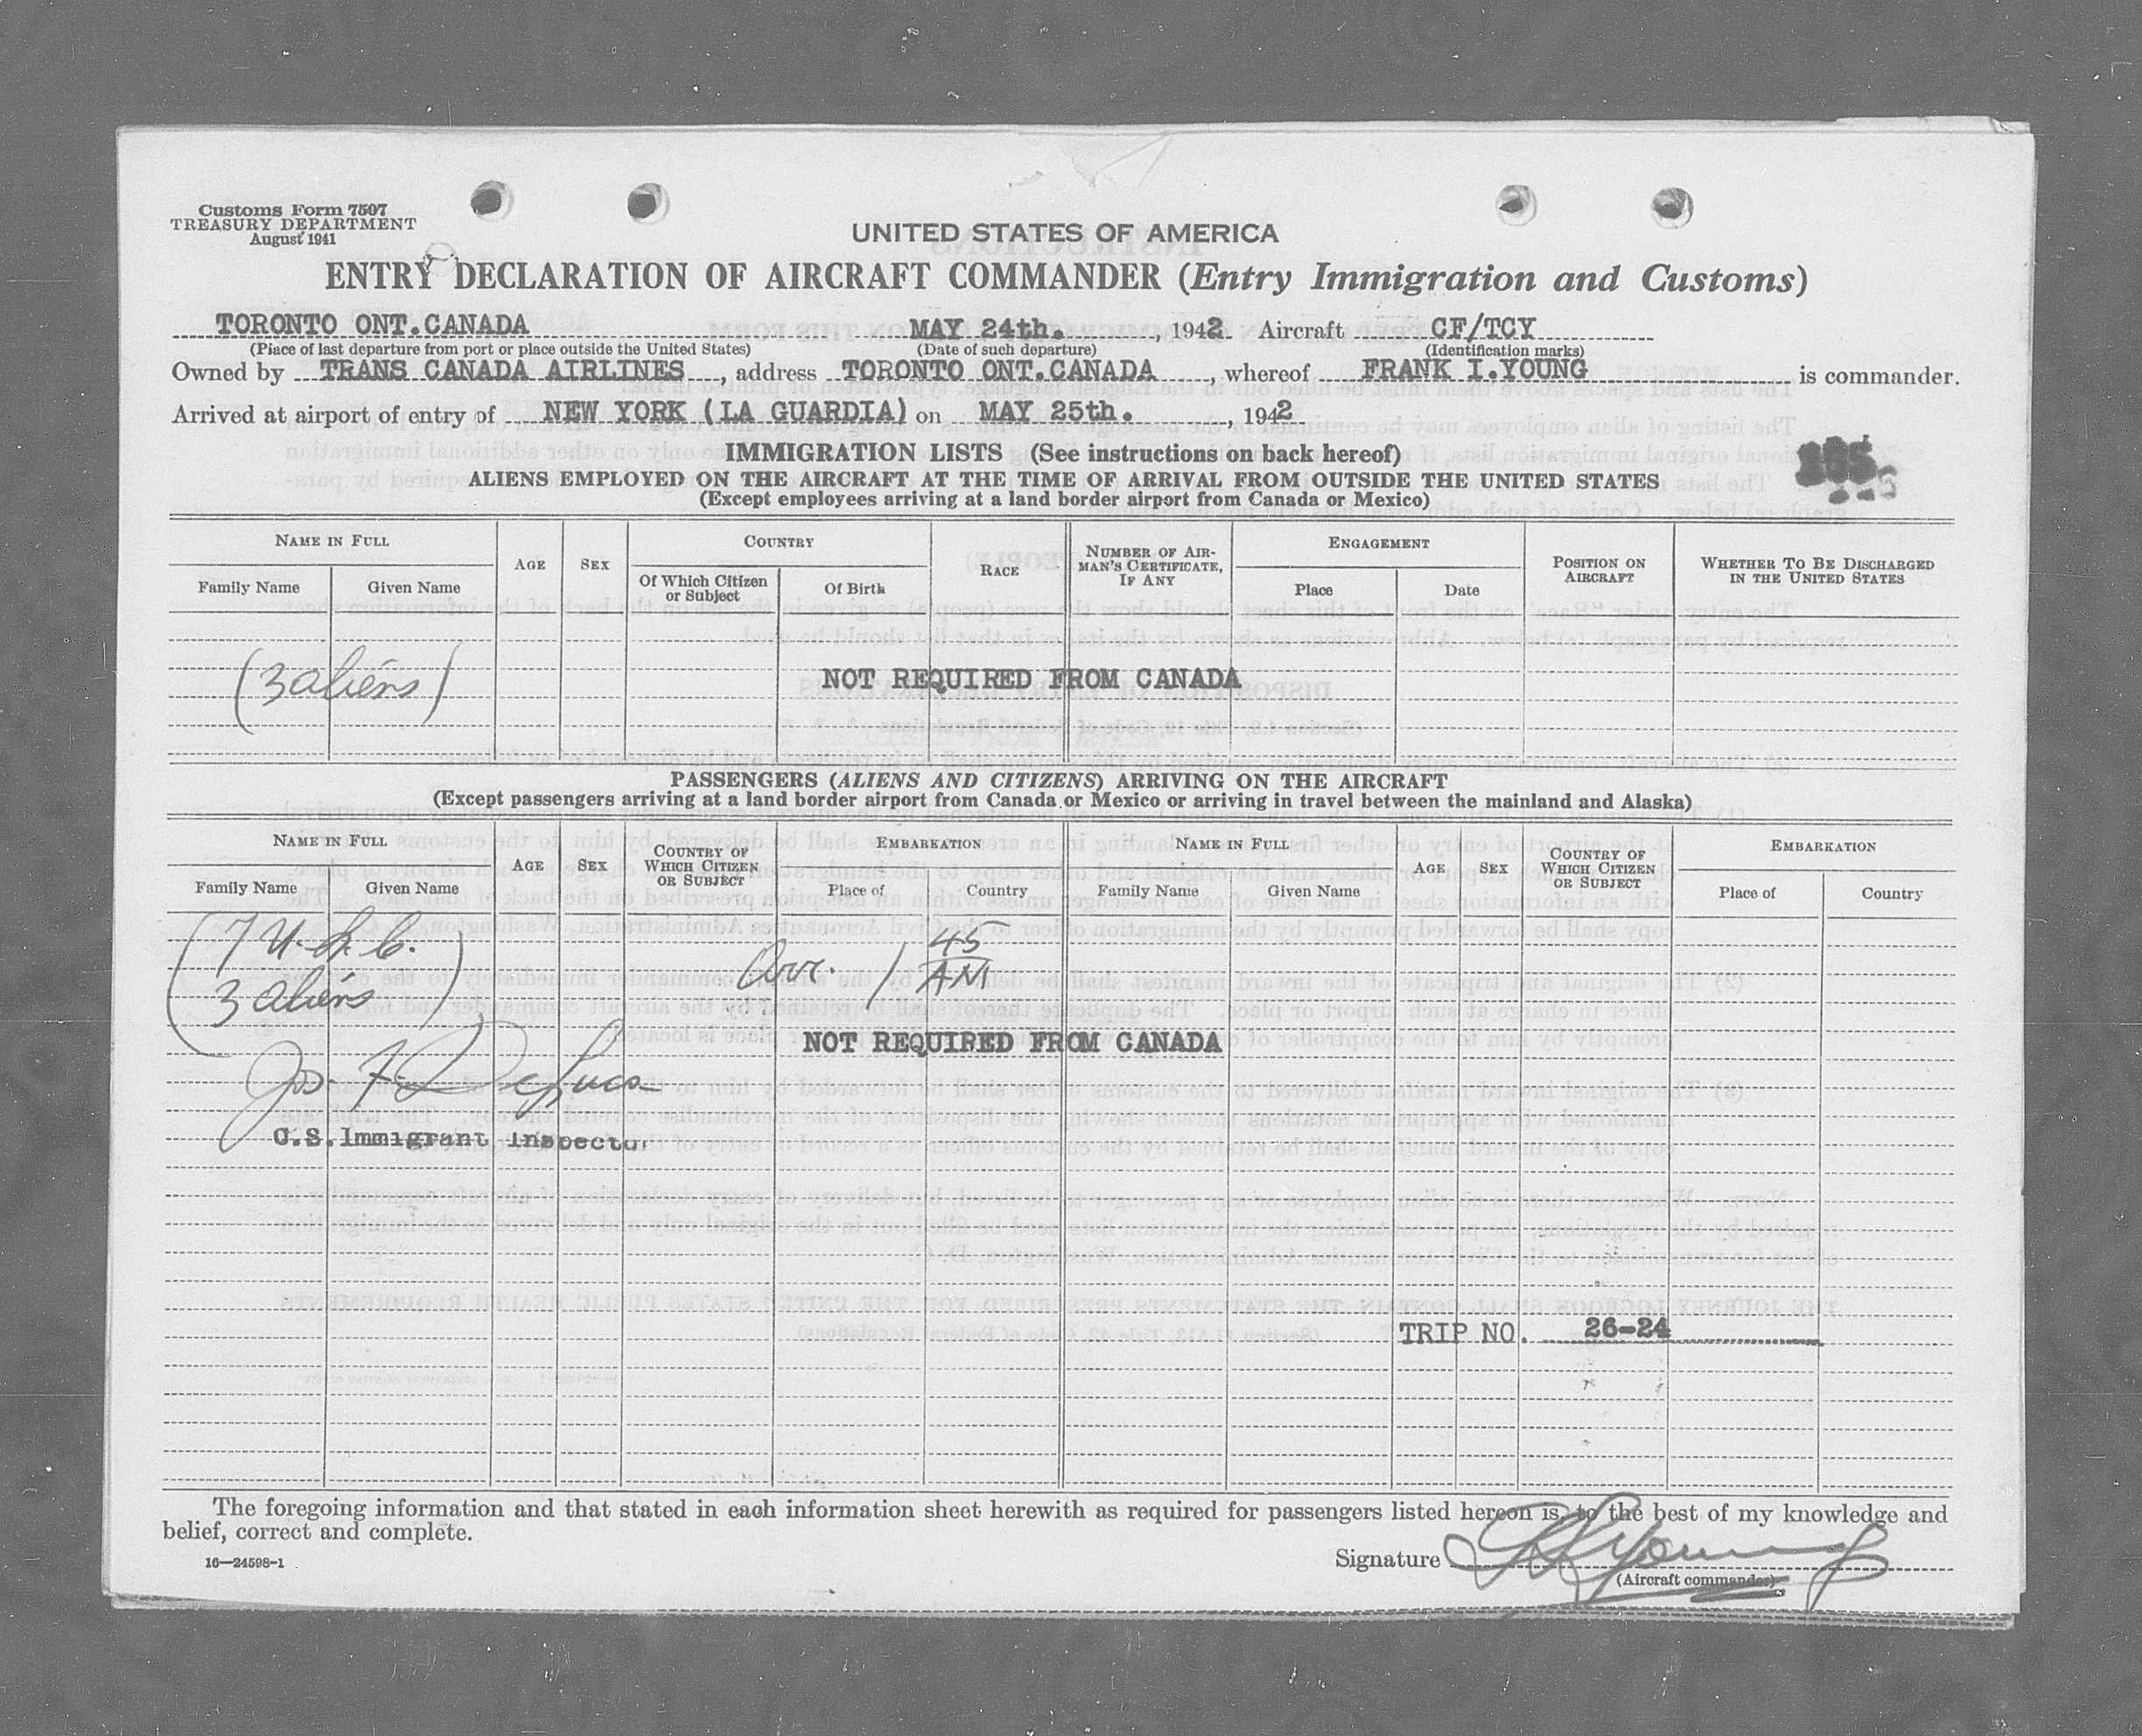 Customs Form 7507
TREASURY DEPARTMENT
August 1941
UNITED STATES OF AMERICA
ENTRY DECLARATION OF AIRCRAFT COMMANDER (Entry Immigration and Customs)
TORONTO ONT.CANADA MAY 24th., 1942 Aircraft CF/TCY
(Place of last departure from port or place outside the United States) (Date of such departure) (Identification marks)
Owned by TRANS CANADA AIRLINES, address TORONTO ONT.CANADA, whereof FRANK I.YOUNG is commander.
Arrived at airport of entry of NEW YORK (LA GUARDIA) on MAY 25th., 1942
IMMIGRATION LISTS (See instructions on back hereof)
ALIENS EMPLOYED ON THE AIRCRAFT AT THE TIME OF ARRIVAL FROM OUTSIDE THE UNITED STATES
(Except employees arriving at a land border airport from Canada or Mexico)
NAME IN FULL AGE SEX COUNTRY RACE NUMBER OF AIRMAN'S CERTIFICATE, IF ANY ENGAGEMENT POSITION ON AIRCRAFT WHETHER TO BE DISCHARGED IN THE UNITED STATES
Family Name Given Name Of Which Citizen or Subject Of Birth Place Date
(3 aliens) NOT REQUIRED FROM CANADA
PASSENGERS (ALIENS AND CITIZENS) ARRIVING ON THE AIRCRAFT
(Except passengers arriving at a land border airport from Canada or Mexico or arriving in travel between the mainland and Alaska)
NAME IN FULL AGE SEX COUNTRY OF WHICH CITIZEN OR SUBJECT EMBARKATION NAME IN FULL AGE SEX COUNTRY OF WHICH CITIZEN OR SUBJECT EMBARKATION
Family Name Given Name Place of Country Family Name Given Name Place of Country
(7 U.S.C.
3 aliens) Arr. 1 45 AM
NOT REQUIRED FROM CANADA
Jos. F. DeLuca
U.S.Immigrant Inspector
TRIP NO. 26-24
The foregoing information and that stated in each information sheet herewith as required for passengers listed hereon is, to the best of my knowledge and
belief, correct and complete.
16—24598-1
Signature F I Young
(Aircraft commander)